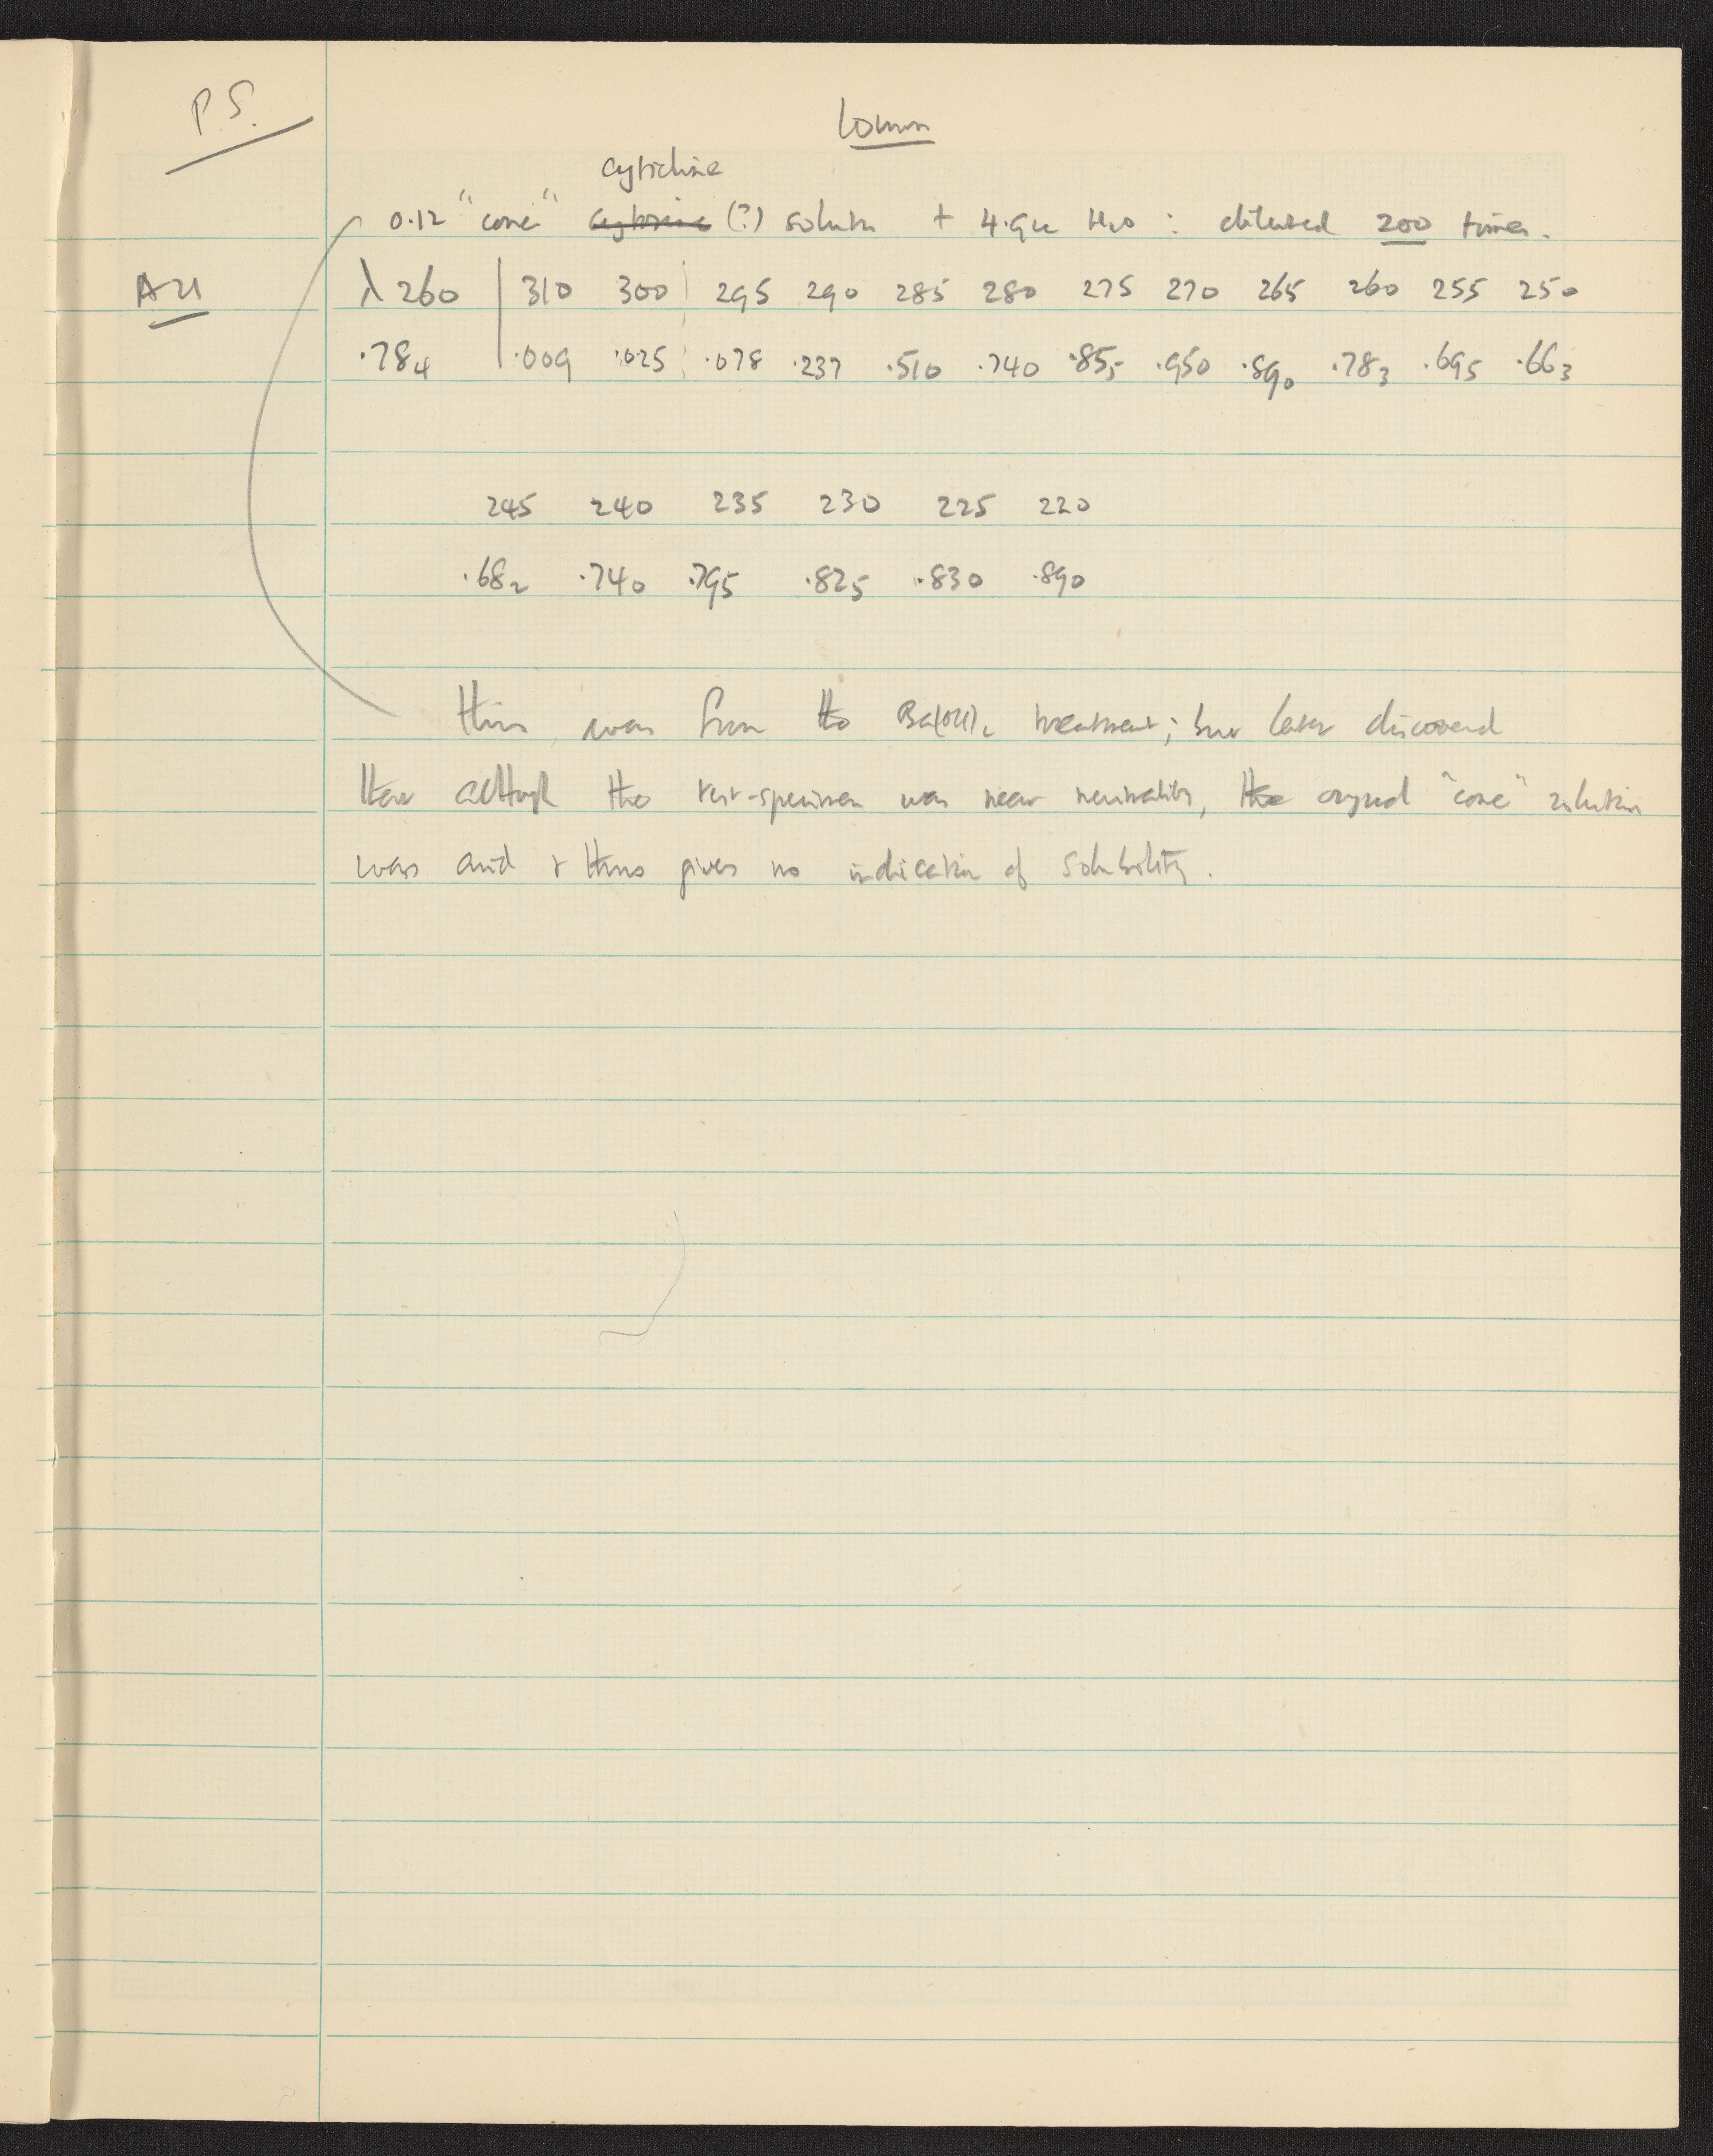 P.S.
10mm
cytidine
0.12 "conc" cytosine (?) solution + 4.9cc H2O : diluted 200 times.
A21
λ260 | 310 300 295 290 285 280 275 270 265 260 255 250
.784 | .009 .025 .078 .237 .510 .740 .855 .950 .890 .783 .695 .663
245 240 235 230 225 220
.682 .740 .795 .825 .830 .890
this was from the Ba(OH)2 treatment; but later discovered
that although the test-specimen was near neutrality, the original "conc" solution
was acid & thus gives no indication of solubility.